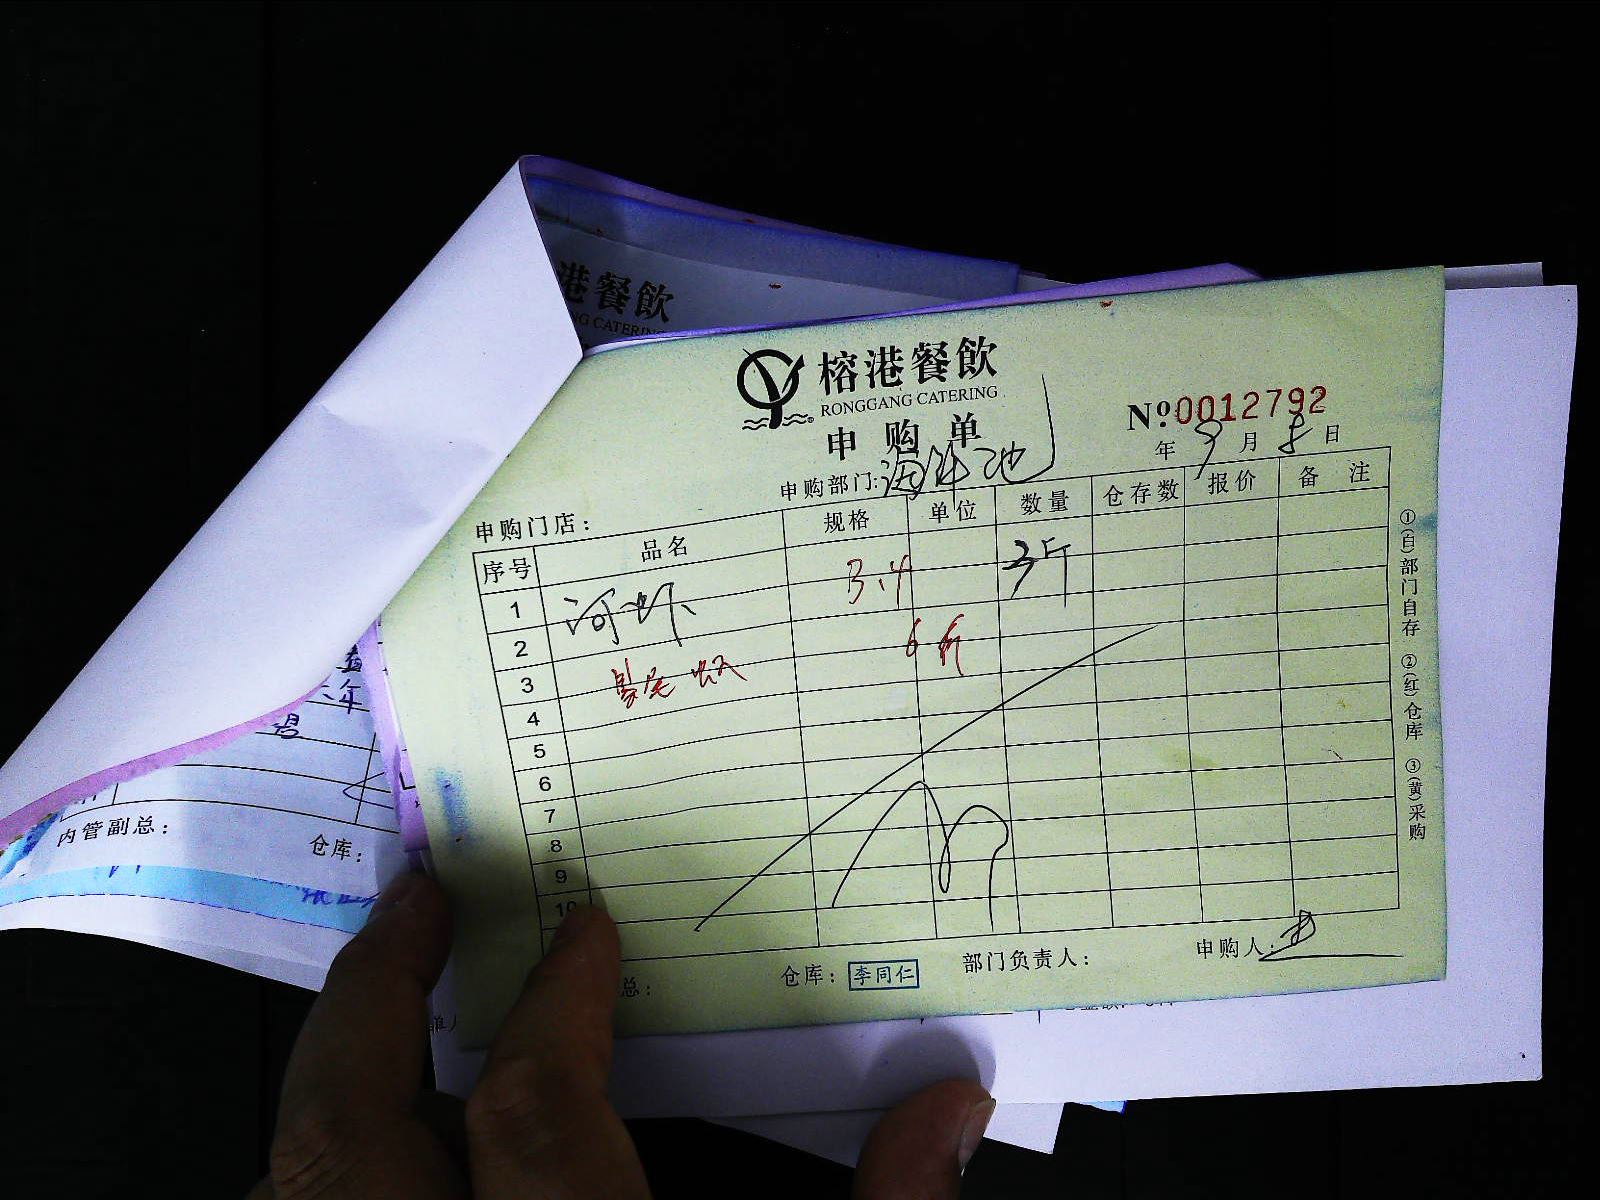 港餐飲
NG CATERING
榕港餐飲
RONGGANG CATERING
申购单
№0012792
年 9 月 8 日
申购部门: 海鲜池
申购门店:
序号 品名 规格 单位 数量 仓存数 报价 备注
1 河虾 3.4 3斤
2
3 基尾虾 6斤
4
5
6
7
8
9
10
总: 仓库: 李同仁 部门负责人: 申购人:
①(白)部门自存 ②(红)仓库 ③(黄)采购
内管副总: 仓库: